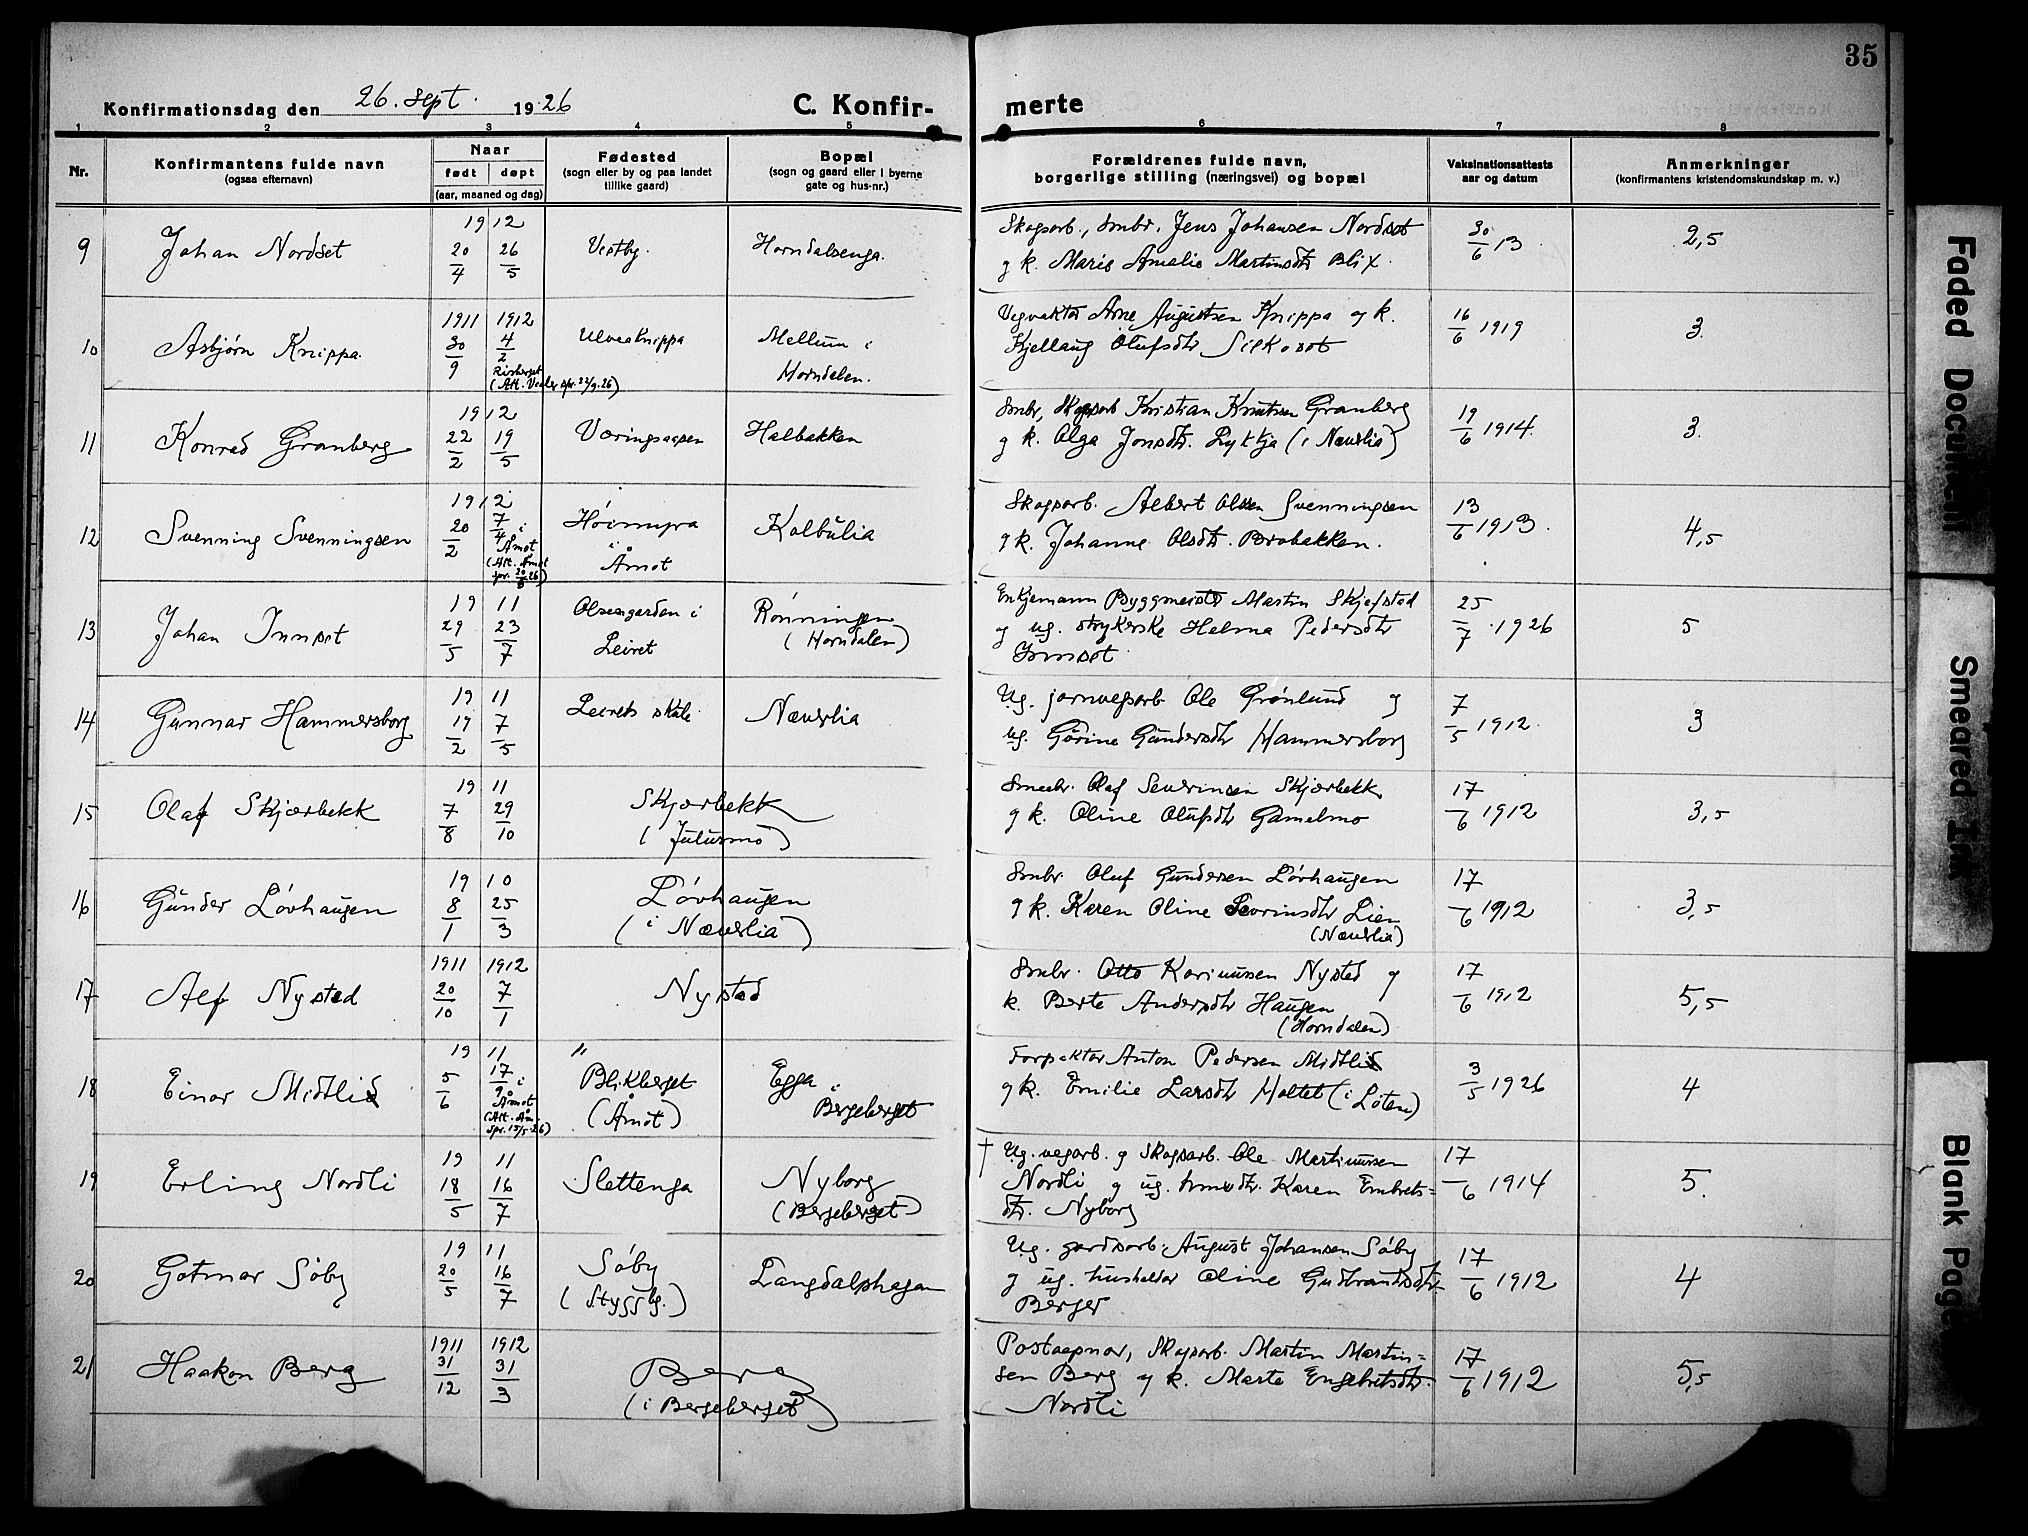 35
Konfirmationsdag den 26. Sept. 1926
C. Konfir-merte
1 2 3 4 5 6 7 8
Nr.
Konfirmantens fulde navn
(ogsaa efternavn)
Naar
født døpt
(aar, maaned og dag)
Fødested
(sogn eller by og paa landet
tillike gaard)
Bopæl
(sogn og gaard eller i byerne
gate og hus-nr.)
Forældrenes fulde navn,
borgerlige stilling (næringsvei) og bopæl
Vaksinationsattests
aar og datum
Anmerkninger
(konfirmantens kristendomskundskap m. v.)
9 Johan Nordset 1912 20/4 26/5 Vestby. Horndalsenga.
Skogsarb., Smbr. Jens Johansen Nordset
g k. Marie Amalie Martinsdtr Blix.
30/6 13 2,5
10 Asbjørn Knippa. 1911 30/9 1912 4/2
Risberget
(Att. Vaaler spr. 22/9.26)
Ulveaknippa Mellum i
Horndalen.
Vegvakter Arne Augustsen Knippa og k.
Kjellaug Olufsdtr Silkoset
16/6 1919 3.
11 Konrad Granberg 1912 22/2 19/5 Væringsaasen Halbakken
Smbr, Skogsarb Kristian Knutsen Granberg
g k. Olga Jonsdtr. Lykkja (i Næverlia)
19/6 1914. 3.
12 Svenning Svenningsen 1912 20/2 7/4 i
Åmot
(Att. Åmot
spr. 20/8 26)
Höimyra
i
Åmot
Kolbulia
Skogsarb. Albert Olsen Svenningsen
g k. Johanne Olsdtr. Brobakken.
13/6 1913. 4,5
13 Johan Innset 1911 29/5 23/7 Olsengarden i
Leiret
Rønningen
(Horndalen)
Enkjemann Byggmeister Martin Skjefstad
g ug. strykerske Helma Pedersdtr
Innset
25/7. 1926 5
14 Gunnar Hammersborg 1911 19/2 7/5 Leirets skole Næverlia
Ug. jarnvegsarb Ole Grønlund g
ug. Gurine Gundersdtr Hammersborg
7/5 1912. 3
15 Olaf Skjærbekk 1911 7/8 29/10 Skjærbekk
(Julusmo)
Smbr. Olaf Severinsen Skjærbekk
g k. Oline Olufsdtr Gamelmo
17/6 1912 3,5
16 Gunder Lövhaugen 1910 8/1 25/3 Lövhaugen
(i Næverlia)
Smbr Oluf Gundersen Lövhaugen
g k. Karen Oline Sevrinsdtr Lien
(Næverlia)
17/6 1912 3,5
17 Alf Nystad 1911 20/10 1912 7/1 Nystad
Smbr. Otto Karinussen Nystad g
k. Berte Andersdtr Haugen
(Horndalen)
17/6 1912 5,5
18 Einar Midtlie 1911 5/6 17/9 i
Åmot
(Att. Åm-
spr. 15/5.26)
"
Blikberget
(Åmot)
Egga i
Bergeberget
Forpakter Anton Pedersen Midtlie
g k. Emilie Larsdtr Holtet (i Løten)
3/5 1926 4
19 Erling Nordli 1911 18/5 16/7 Slettenga Nyborg
(Bergeberget)
† Ug. vegarb. g Skogsarb. Ole Martinussen
Nordli g ug. Karen Embrets=
dtr. Nyborg
17/6 1914 5.
20 Gotmar Söby 1911 20/5 16/7 Söby
(Styggbg.)
Langdalshagen
Ug. gardsarb. August Johansen Söby
g ug. husholder Oline Gudbrandsdtr
Berger
17/6 1912 4
21 Haakon Berg 1911 31/12 1912 31/3 Berg
(i Bergeberget)
Postaapnar, Skogsarb. Martin Martin=
sen Berg g k. Marte Engebretsdtr.
Nordli
17/6 1912 5,5
Faded Document
Smeared Ink
Blank Page